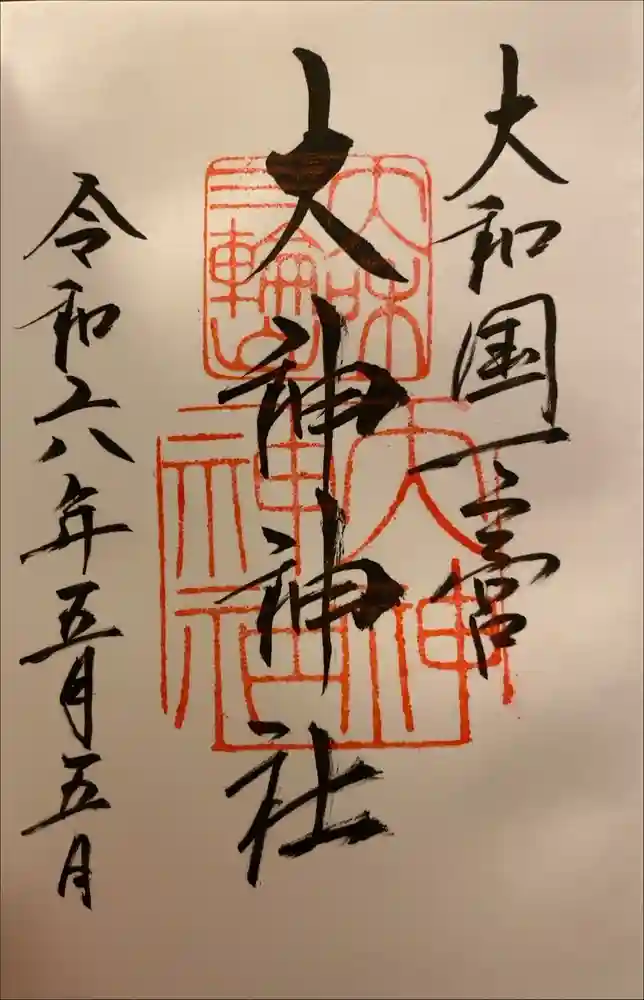 大和国一宮
大神神社
令和六年五月五月
大和
三輪山
大神
神社